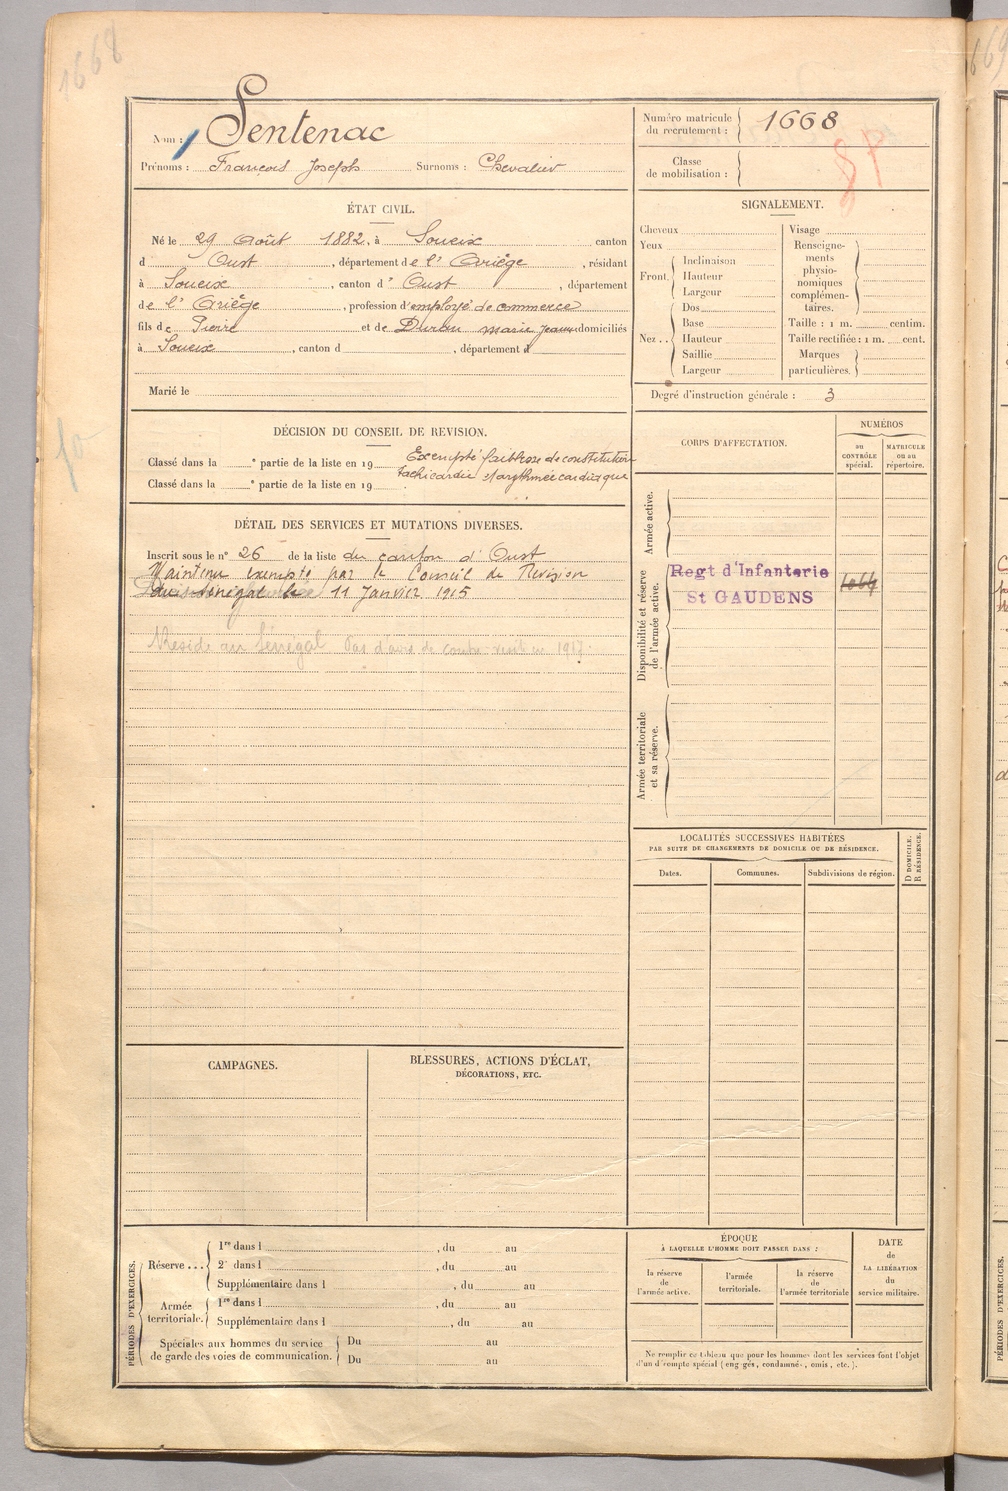 1668
Nom : Sentenac
Prénoms : François Joseph Surnoms : Chevalier
Numéro matricule du recrutement : 1668
Classe de mobilisation :
ÉTAT CIVIL.
Né le 29 Août 1882, à Soueix canton
d Oust, département de l'Ariège, résidant
à Soueix, canton d'Oust, département
de l'Ariège, profession d'employé de commerce
fils de Pierre et de Duran marie Jeanne domiciliés
à Soueix, canton d , département d
Marié le
SIGNALEMENT.
Cheveux
Yeux
Front. Inclinaison
Hauteur
Largeur
Nez . . Dos
Base
Hauteur
Saillie
Largeur
Visage
Renseigne-
ments
physio-
nomiques
complémen-
taires.
Taille : 1 m. centim.
Taille rectifiée : 1 m. cent.
Marques
particulières.
Degré d'instruction générale : 3
DÉCISION DU CONSEIL DE REVISION.
Classé dans la e partie de la liste en 19 Exempté faiblesse de constitution
Classé dans la e partie de la liste en 19 tachicardie et arythmée cardiaque
CORPS D'AFFECTATION.
NUMÉROS
au CONTRÔLE spécial.
MATRICULE ou au répertoire.
Armée active.
Disponibilité et réserve de l'armée active.
Regt d'Infanterie
St GAUDENS
Armée territoriale et sa réserve.
DÉTAIL DES SERVICES ET MUTATIONS DIVERSES.
Inscrit sous le n° 26 de la liste du canton d'Oust
Maintenu exempté par le Conseil de Revision
du Sénégal le 11 Janvier 1915
Réside au Sénégal Pas d'avis de contre visite en 1917.
LOCALITÉS SUCCESSIVES HABITÉES
PAR SUITE DE CHANGEMENTS DE DOMICILE OU DE RÉSIDENCE.
Dates.
Communes.
Subdivisions de région.
D DOMICILE.
R RÉSIDENCE.
CAMPAGNES.
BLESSURES, ACTIONS D'ÉCLAT,
DÉCORATIONS, ETC.
PÉRIODES D'EXERCICES.
Réserve . . . 1re dans l , du au
2e dans l , du au
Supplémentaire dans l , du au
Armée territoriale. 1re dans l , du au
Supplémentaire dans l , du au
Spéciales aux hommes du service
de garde des voies de communication. Du au
Du au
ÉPOQUE
À LAQUELLE L'HOMME DOIT PASSER DANS :
la réserve de l'armée active.
l'armée territoriale.
la réserve de l'armée territoriale
DATE
de
LA LIBÉRATION
du
service militaire.
Ne remplir ce tableau que pour les hommes dont les services font l'objet
d'un décompte spécial (engagés, condamnés, omis, etc.).
PÉRIODES D'EXERCICES.